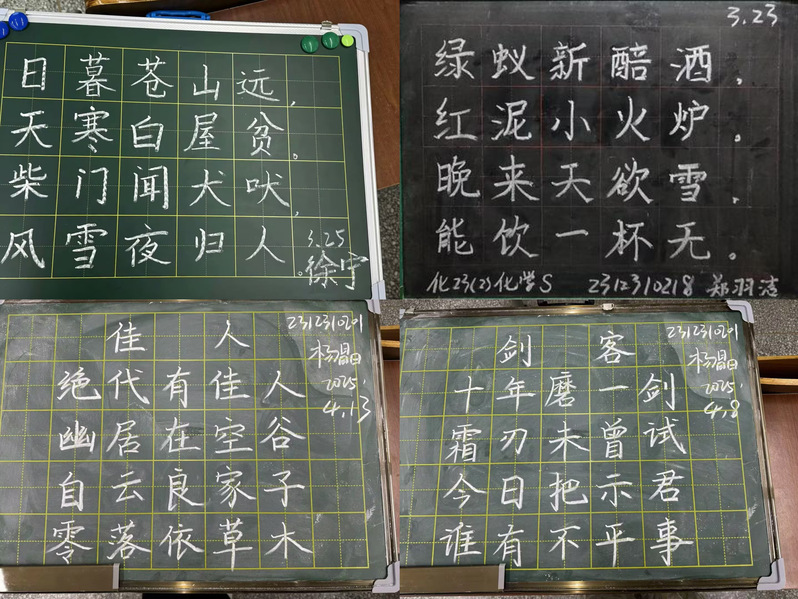 日暮苍山远，
天寒白屋贫。
柴门闻犬吠，
风雪夜归人。
3.25
徐宁
3.23
绿蚁新醅酒。
红泥小火炉。
晚来天欲雪。
能饮一杯无。
化23(2)化学S 2312310218 郑羽洁
2312310201
佳人
杨昌日
2025.
4.13
绝代有佳人
幽居在空谷
自云良家子
零落依草木
2312310201
剑客
杨昌日
2025.
4.8
十年磨一剑
霜刃未曾试
今日把示君
谁有不平事